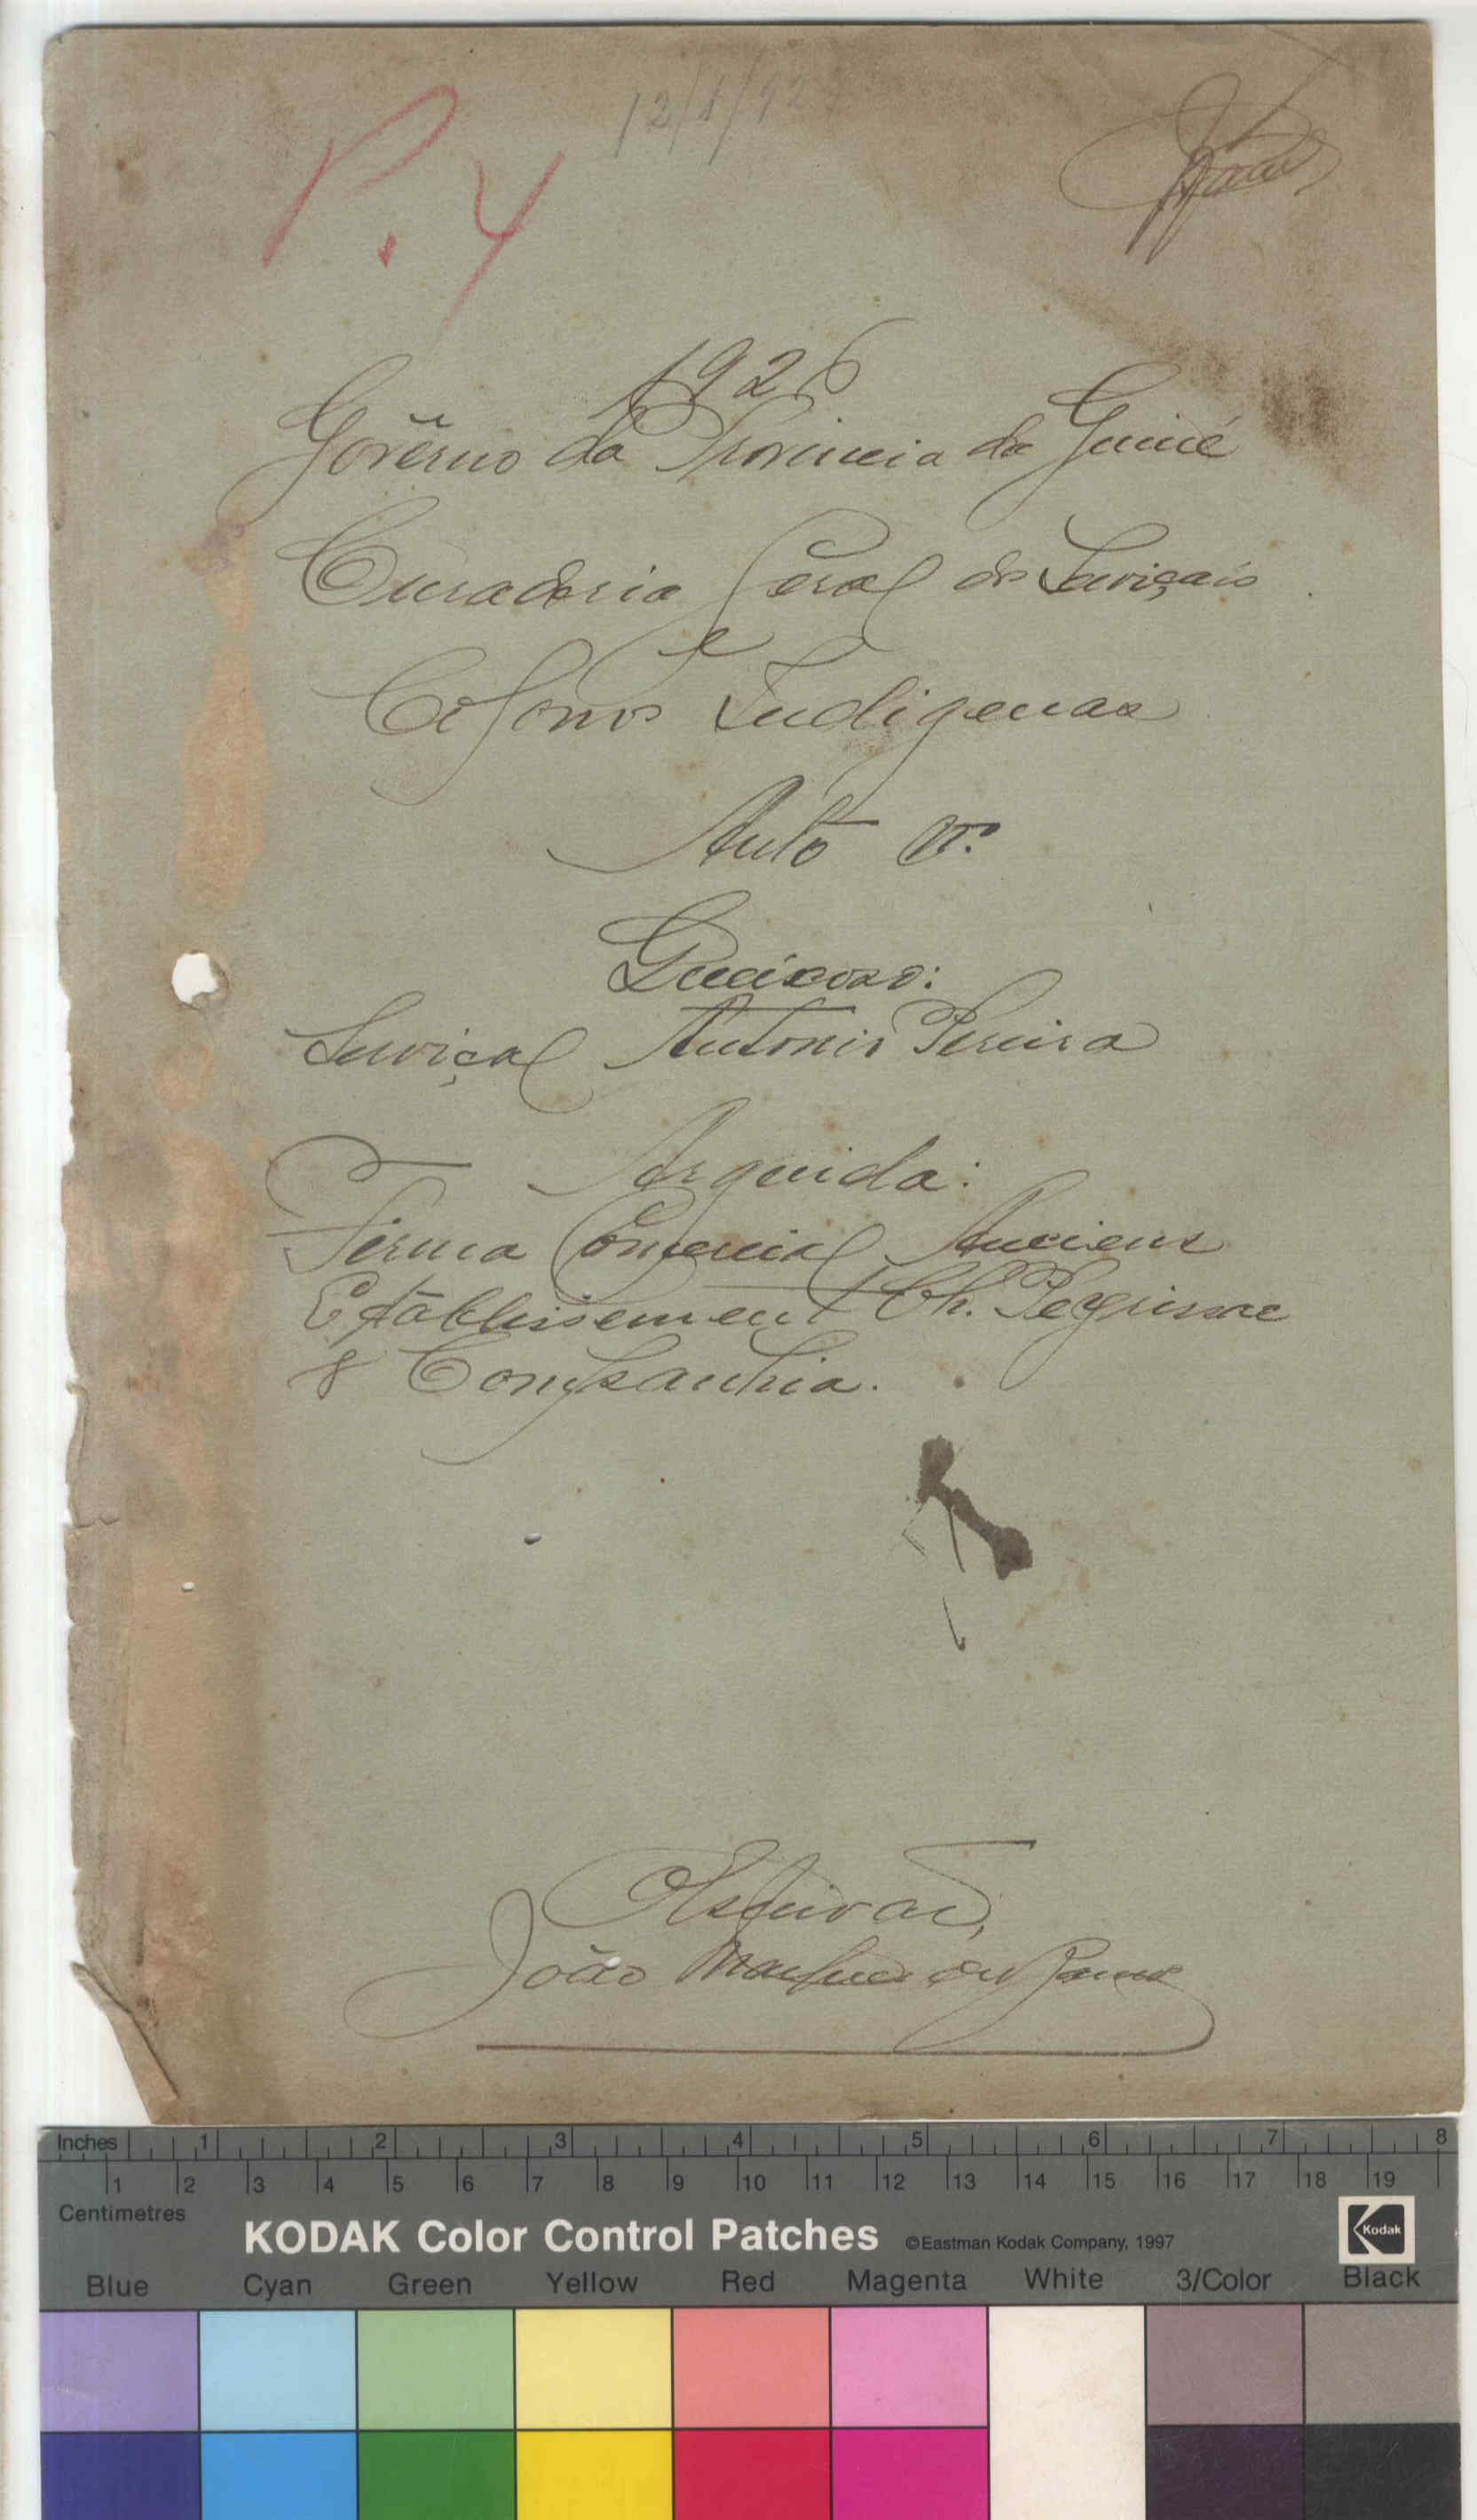 12/1/92
P. 4
1926
Govêrno da Provincia da Guiné
Curadoria Geral de Serviçais
e
Colonos Indigenas
Auto nº
Queixoso:
Serviçal Antonio Pereira
Arguida:
Firma Comercial Anciens
Etablissement Ch. Peyrissac
& Companhia.
O Escrivão,
João
Inches 1 2 3 4 5 6 7 8
1 2 3 4 5 6 7 8 9 10 11 12 13 14 15 16 17 18 19
Centimetres
KODAK Color Control Patches ©Eastman Kodak Company, 1997 Kodak
Blue Cyan Green Yellow Red Magenta White 3/Color Black